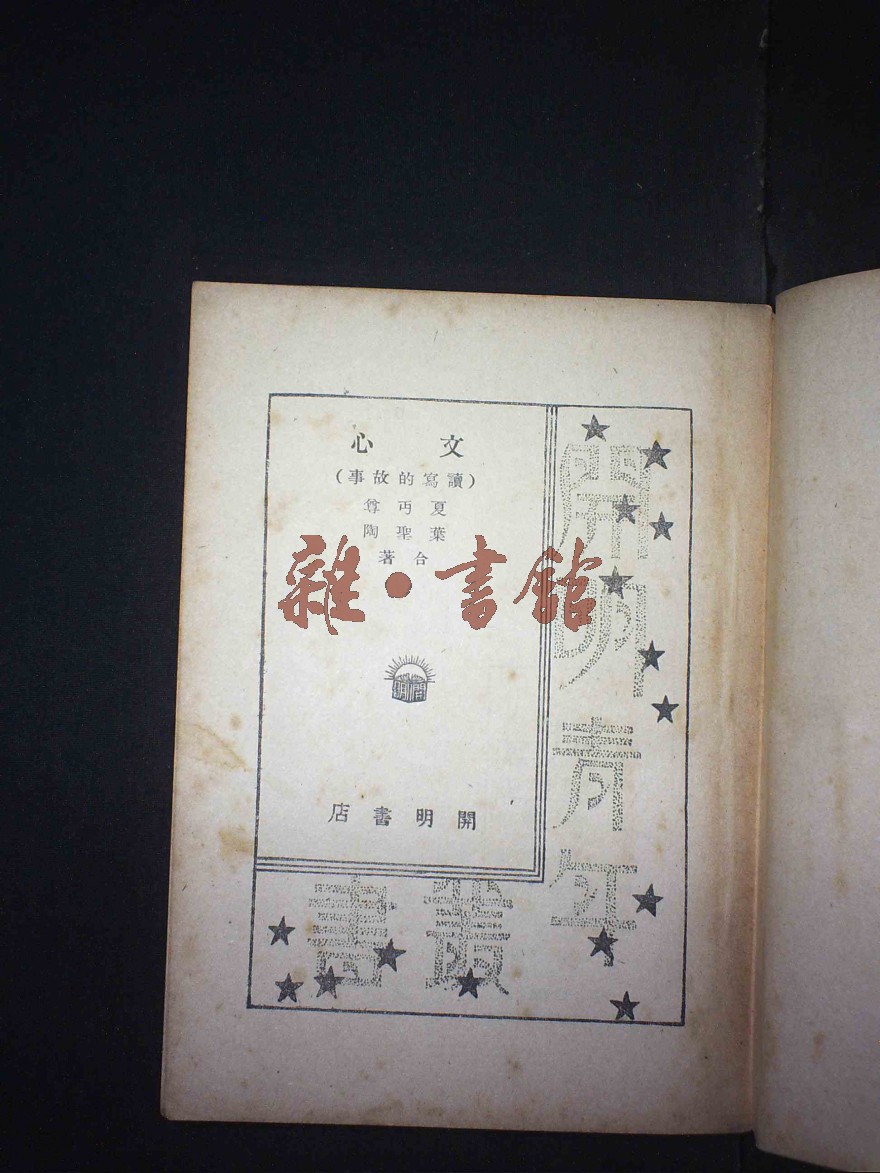 文心
(讀寫的故事)
夏丏尊
葉聖陶
合著
開明
開明書店
開明青年
叢書
雜·書館